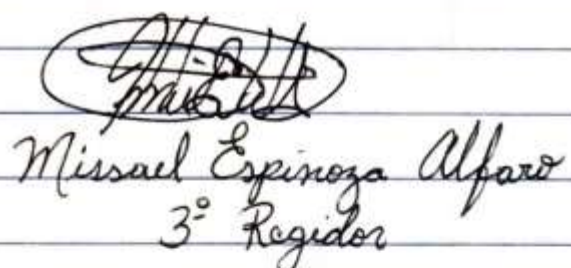 Missael Espinoza Alfaro
3º Regidor